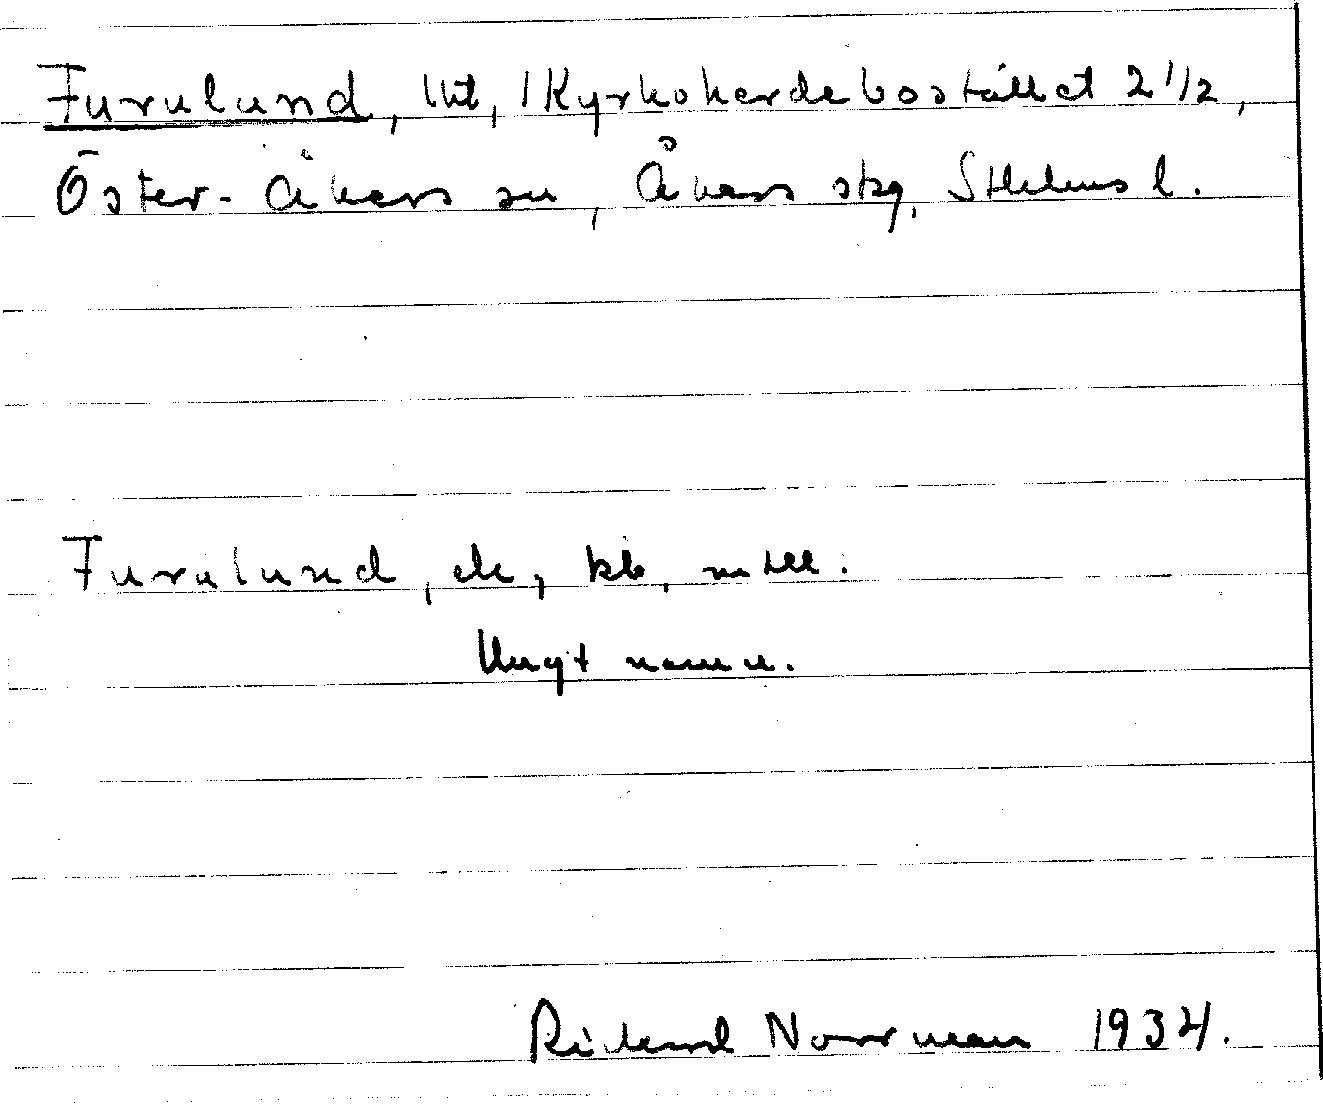 Furulund, lht, 1 Kyrkoherdebostället 2 1/2,
Öster-Åkers sn, Åkers skg, Sthlms l.
Furulund, ek, kb,
Ungt namn.
Rikard Norrman 1934.